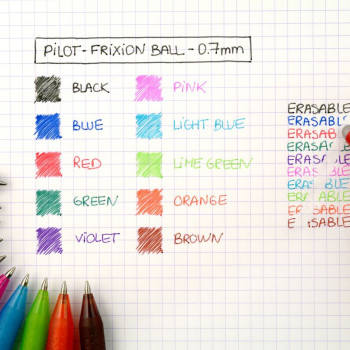 PILOT-FRIXION BALL - 0.7mm
BLACK
BLUE
RED
GREEN
VIOLET
PINK
LIGHT BLUE
LIME GREEN
ORANGE
BROWN
ERASABLE
ERASABLE
ERASAB
ERASABLE
ERASABLE
ERASABLE
ERASABLE
ER ABLE
ER SABLE
E ISABLE